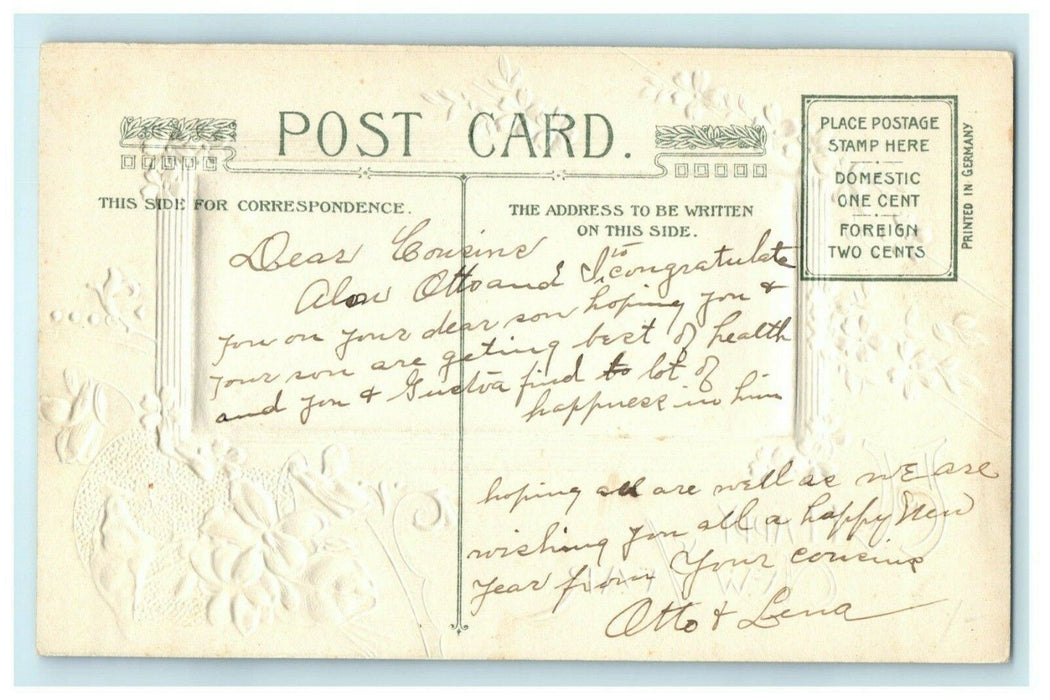 POST CARD.
THIS SIDE FOR CORRESPONDENCE.
THE ADDRESS TO BE WRITTEN
ON THIS SIDE.
PLACE POSTAGE
STAMP HERE
DOMESTIC
ONE CENT
FOREIGN
TWO CENTS
PRINTED IN GERMANY
Dear Cousins
Also Otto and I to congratulate
you on your dear son hoping you &
your son are geting best of health
and you & Gustva find to lot of
happness in him
hoping all are well as wE are
wishing you all a happy New
Year from Your cousins
Otto & Lena